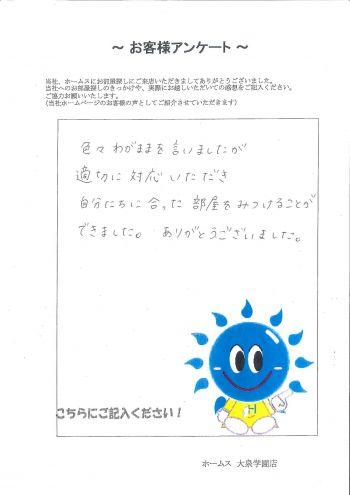 ～ お客様アンケート ～
当社、ホームスにお部屋探しにご来店いただきましてありがとうございました。
当社へのお部屋探しのきっかけや、実際にお越しいただいての感想をご記入ください。
ご協力お願いいたします。
(当社ホームページのお客様の声としてご紹介させていただきます)
色々わがままを言いましたが
適切に対応いただき
自分たちに合った部屋をみつけることが
できました。ありがとうございました。
H
こちらにご記入ください！
ホームス 大泉学園店